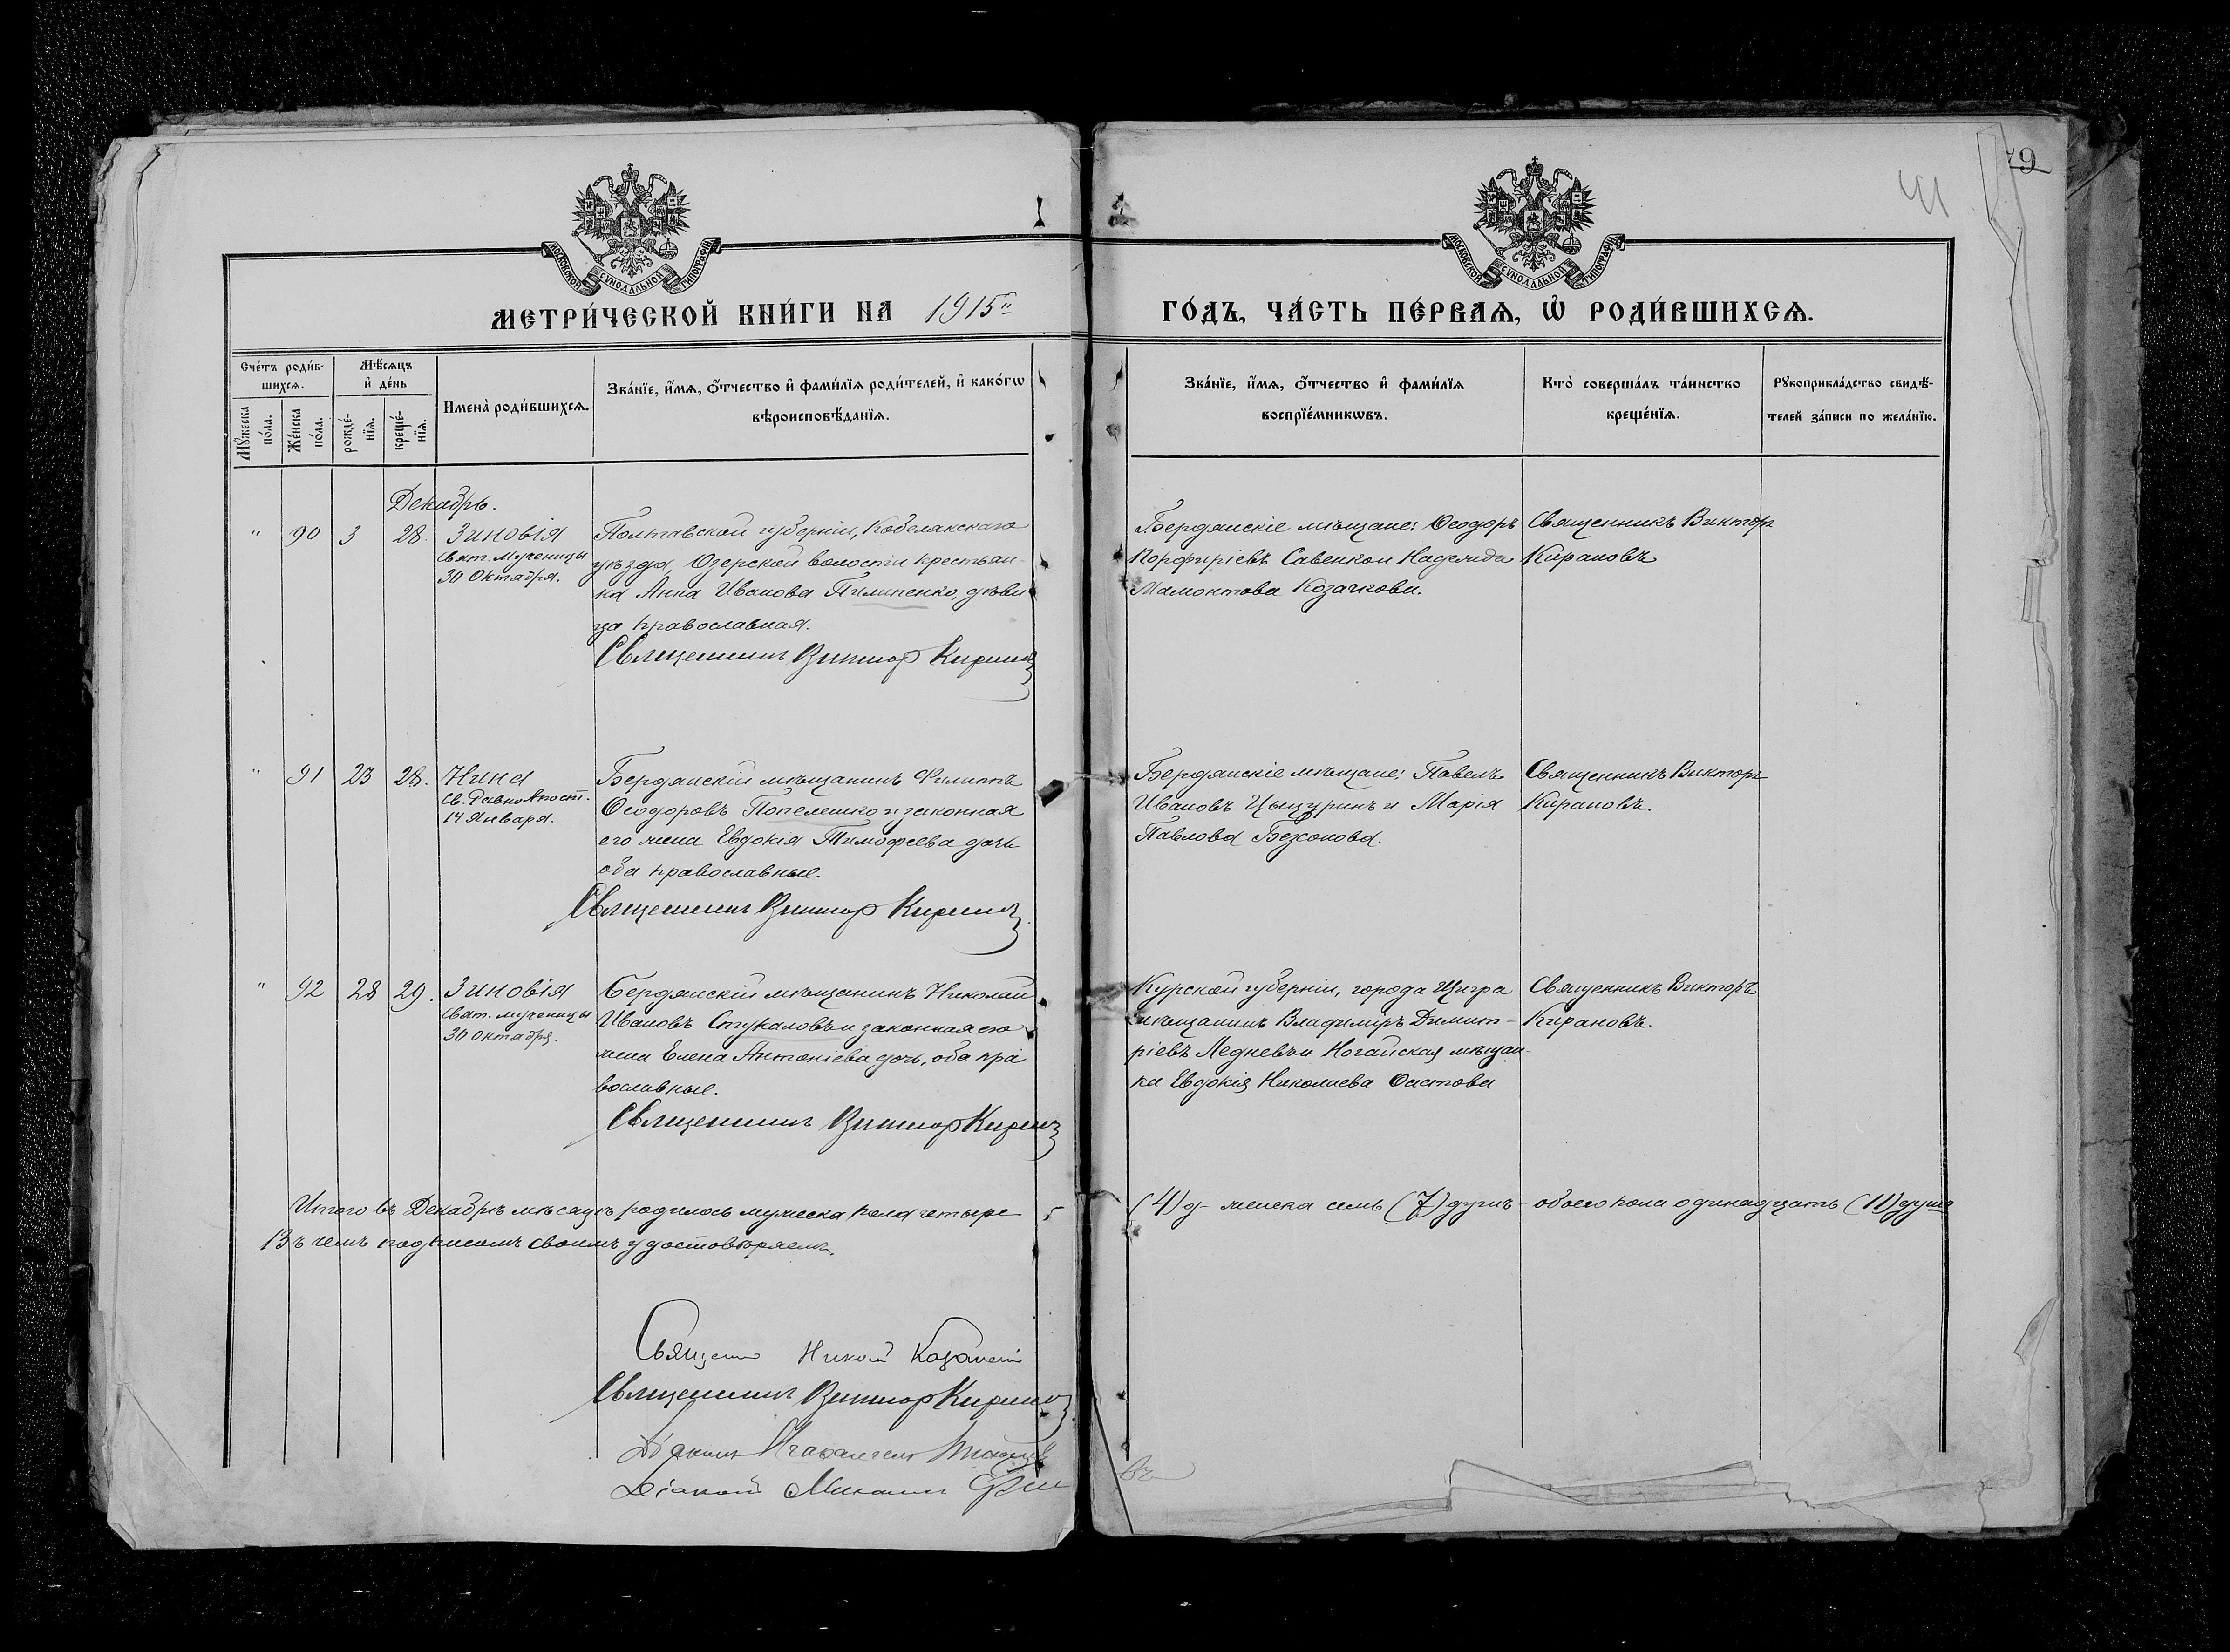 79
41
МОСКОВСКОЙ СѴНОДАЛЬНОЙ ТИПОГРАФІИ
МОСКОВСКОЙ СѴНОДАЛЬНОЙ ТИПОГРАФІИ
МЕТРИ́ЧЕСКОЙ КНИ́ГИ НА 1915й ГО́ДЪ, ЧА́СТЬ ПЕ́РВАѦ, Ѡ҆ РОДИ́ВШИХСѦ.
Сче́тъ роди́в-
шихсѧ.
Мꙋ́жеска по́ла.
Же́нска по́ла.
Мѣ́сѧцъ
и҆ де́нь
рожде́-
нїѧ.
креще́-
нїѧ.
Имена̀ роди́вшихсѧ.
Зва́нїе, и҆́мѧ, ѻ҆́тчество и҆ фами́лїѧ роди́телей, и҆ како́гѡ
вѣроисповѣ́данїѧ.
Зва́нїе, и҆́мѧ, ѻ҆́тчество и҆ фами́лїѧ
воспрїе́мникѡвъ.
Кто̀ соверша́лъ та́инство
креще́нїѧ.
Рꙋкоприкла́дство свидѣ́-
телей за́писи по жела́нїю.
Декабрь.
" 90 3 28. Зиновія
Свят. Мученицы
30 Октября.
Полтавской губерніи, Кобелякскаго
уѣзда, Озерской волости крестьян-
ка Анна Иванова Пилипенко, дѣви
ца православная.
Священникъ Викторъ Кирановъ
Бердянскіе мѣщане: Ѳеодоръ
Порфиріевъ Савенко и Надежда
Мамонтова Козачкова.
Священникъ Викторъ
Кирановъ
" 91 23 28. Нина
Св. РавноАпост.
14 Января.
Бердянскій мѣщанинъ Филиппъ
Ѳеодоровъ Попелешко и законная
его жена Евдокія Тимофеева дочь
оба православные.
Священникъ Викторъ Кирановъ
Бердянскіе мѣщане: Павелъ
Ивановъ Цыцуринъ и Марія
Павлова Безсонова.
Священникъ Викторъ
Кирановъ.
" 92 28 29. Зиновія
Свят. мученицы
30 Октября.
Бердянскій мѣщанинъ Николай
Ивановъ Стукаловъ и законная его
жена Елена Антоніева дочь, оба пра
вославные.
Священникъ Викторъ Кирановъ
Курской губерніи, города Щигра
мѣщанинъ Владимиръ Димит-
ріевъ Ледневъ и Ногайская мѣщан-
ка Евдокія Николаева
Священникъ Викторъ
Кирановъ.
Итого въ Декабрѣ мѣсяцѣ родилось мужеска пола четыре (4) д- женска семь (7) душъ- обоего пола одинадцать (11) душъ
Въ чемъ подписомъ своимъ удостовѣряемъ.
Священникъ Николай
Священникъ Викторъ Кирановъ
Діаконъ
Діаконъ Михаилъ